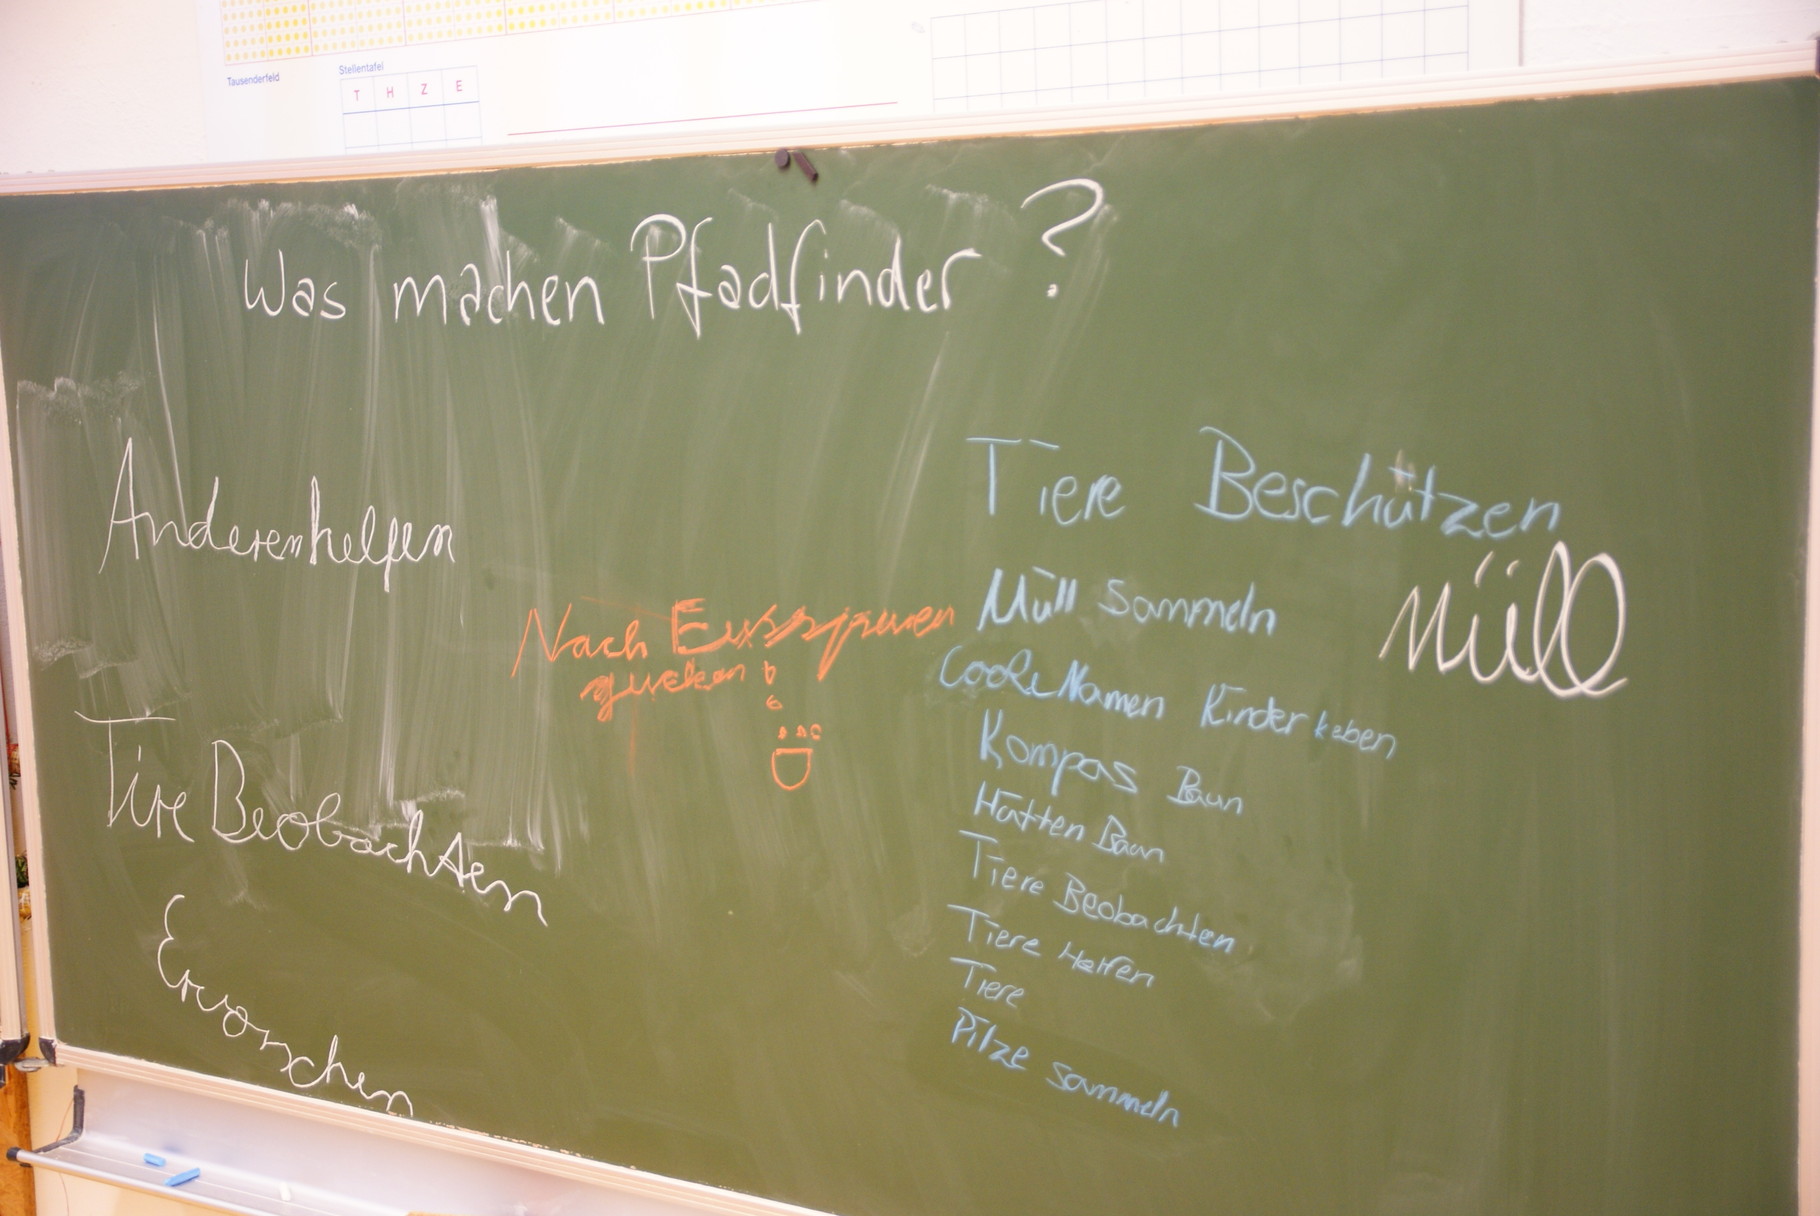 Tausenderfeld
Stellentafel
T H Z E
Was machen Pfadfinder?
Anderen helfen
Tire Beobachten
Ervorschen
Nach Fussspuren
gucken
Tiere Beschützen
Müll Sammeln
Müll
Coole Namen Kinder haben
Kompas Baun
Hütten Baun
Tiere Beobachten
Tiere Helfen
Tiere
Pilze sammeln